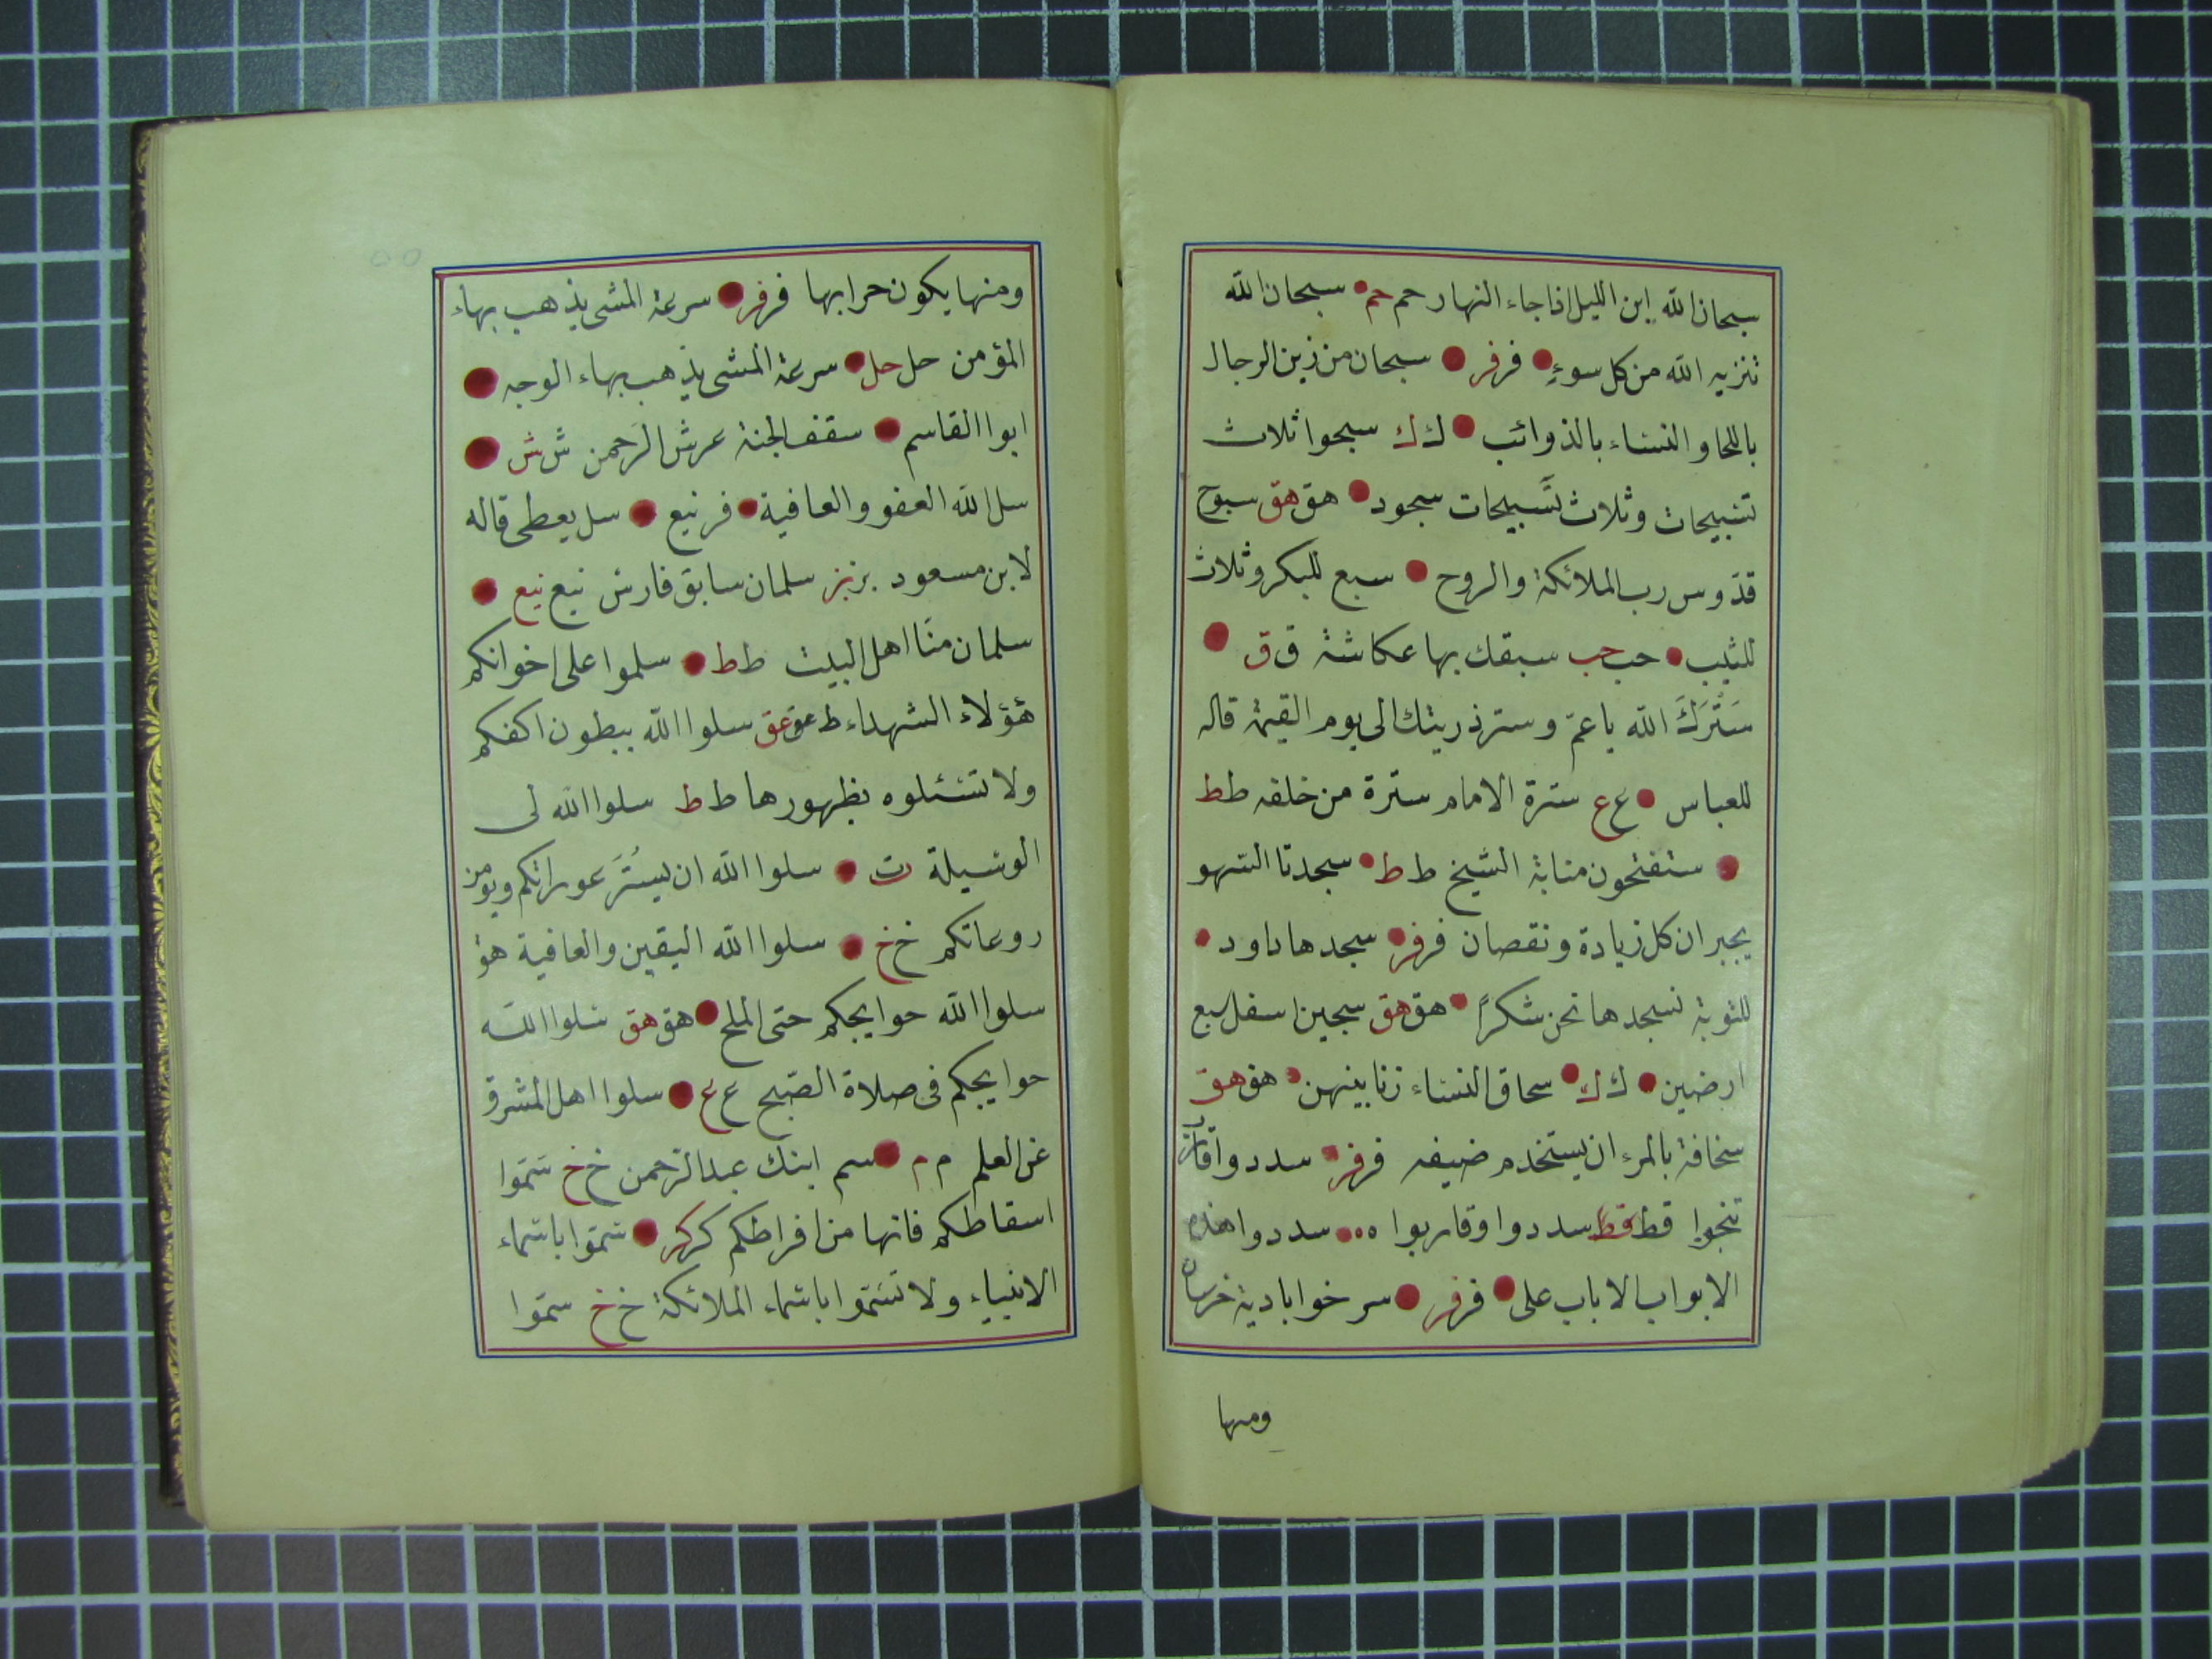 سبحان الله اين الليل اذا جاء النهار حم حم سبحان الله
تنزيه الله من كل سوءٍ فر فر سبحان من زين الرجال
باللحا والنساء بالذوائب ك ك سبحوا ثلاث
تسبيحات وثلاث تسبيحات سجود هق هق سبوح
قدوس رب الملائكة والروح سبع للبكر وثلاث
للثيب حب حب سبقك بها عكاشة ق ق
سَتَرَكَ الله يا عم وستر ذريتك الى يوم القيمة قاله
للعباس ع ع سترة الامام سترة من خلفه ط ط
ستفتحون منابة الشيخ ط ط سجدتا السهو
يجبران كل زيادة ونقصان فر فر سجدها داود
للتوبة نسجدها نحن شكرًا هق هق سجين اسفل سبع
ارضين ك ك سحاق النساء زنا بينهن هق هق
سخافة بالمرء ان يستخدم ضيفه فر فر سددوا
تنجوا قط قط سددوا وقاربوا ه سددوا هذه
الابواب الا باب على فر فر سرخوا بادية خرسان
ومنها
ومنها يكون حرابها فر فر سرعة المشى يذهب بهاء
المؤمن حل حل سرعة المشى يذهب بهاء الوجه
ابوا القاسم سقف الجنة عرش الرَحمن ش ش
سل الله العفو والعافية فر نيع سل يعطى قاله
لابن مسعود بز بز سلمان سابق فارس نيع نيع
سلمان منّا اهل البيت ط ط سلموا على اخوانكم
هؤلاء الشهداء ط عق عق سلوا الله ببطون اكفكم
ولا تسئلوه بظهورها ط ط سلوا الله لى
الوسيلة ت سلوا الله ان يستُرَ عوراتكم ويؤمن
روعاتكم خ خ سلوا الله اليقين والعافية هو
سلوا الله حوايجكم حتى الملح هق هق سلوا الله
حوايجكم فى صلاة الصّبح ع ع سلوا اهل المشرق
عن العلم م م سم ابنك عبد الرّحمن خ خ سَمّوا
اسقاطكم فانها من افراطكم كر كر سَمّوا باسماء
الانبياء ولا تَسَمّوا باسماء الملائكة خ خ سمّوا